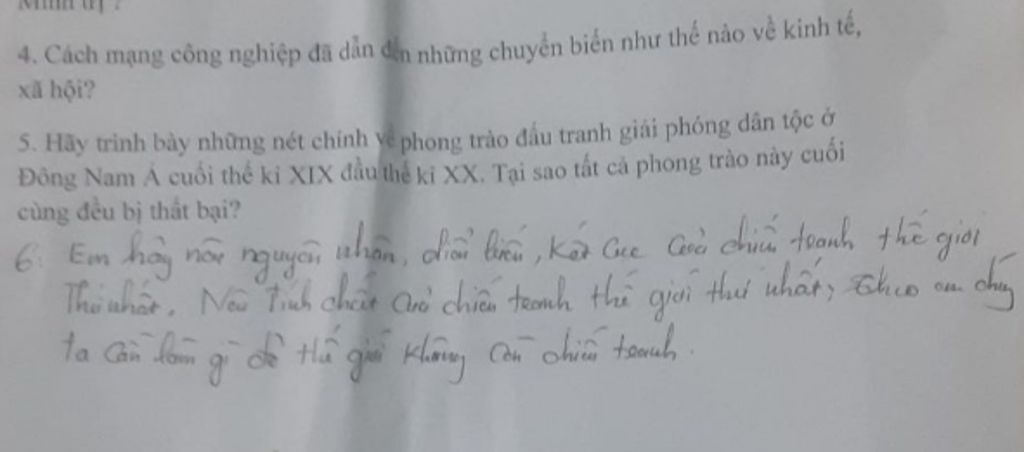 4. Cách mạng công nghiệp đã dẫn đến những chuyển biến như thế nào về kinh tế,
xã hội?
5. Hãy trình bày những nét chính về phong trào đấu tranh giải phóng dân tộc ở
Đông Nam Á cuối thế kỉ XIX đầu thế kỉ XX. Tại sao tất cả phong trào này cuối
cùng đều bị thất bại?
6: Em hãy nêu nguyên nhân, diễn biến, kết cục của chiến tranh thế giới
Thứ nhất. Nêu tính chất của chiến tranh thế giới thứ nhất, theo em chúng
ta cần làm gì để thế giới không còn chiến tranh.